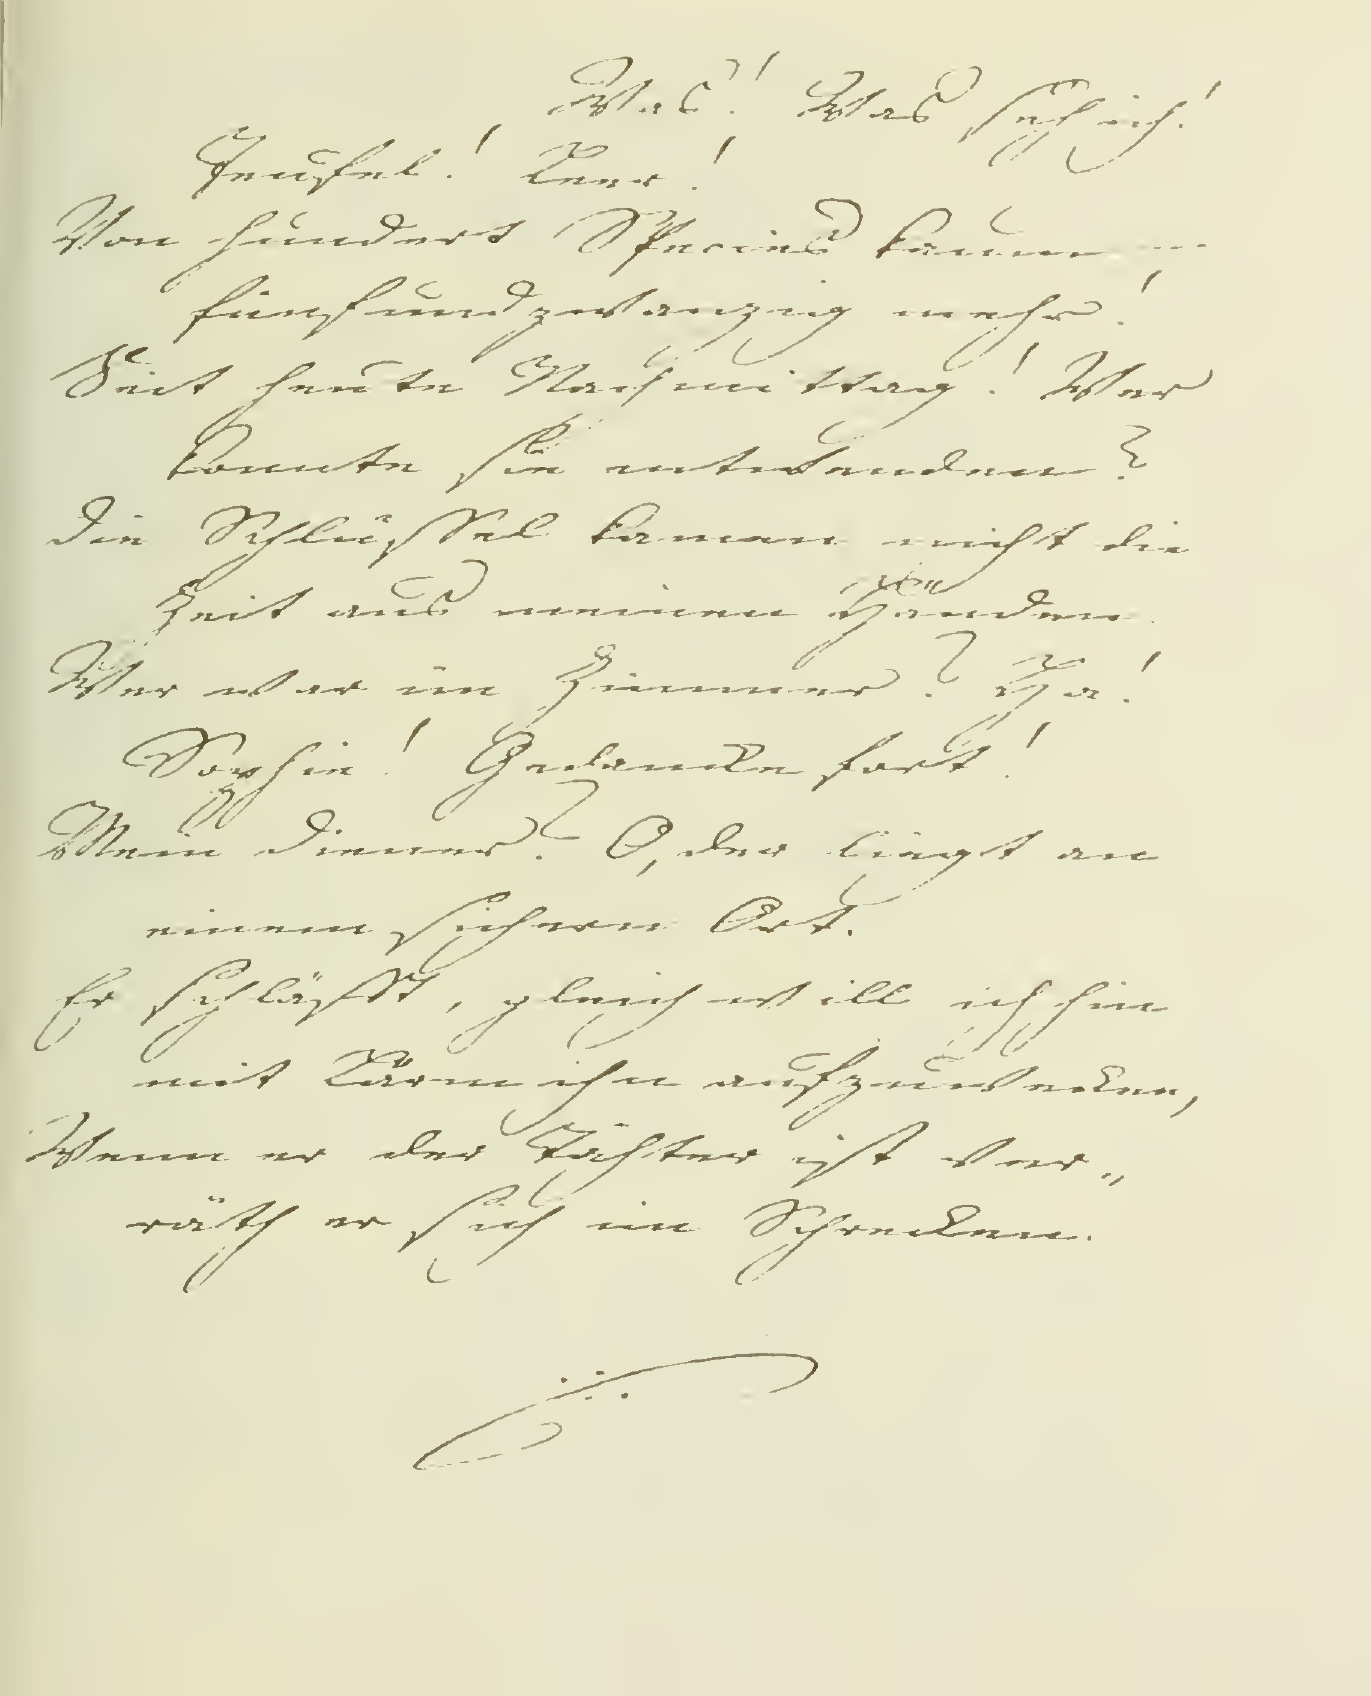 Was! Was seh ich!
Teufel! Leer!
Von hundert Species kaum
fünfundzwanzig mehr!
Seit heute Nachmittag! Wer
konnte sie entwenden?
Die Schlüssel kamen nicht die
Zeit aus meinen Händen.
Wer war im Zimmer? Ha!
Sophie! Gedancke fort!
Mein Diener? O, der liegt an
einem sichern Ort.
Er schläfft, gleich will ich hin
mit Lärm ihn aufzuwecken,
Wenn er der Tähter ist ver„
räth er sich im Schrecken.